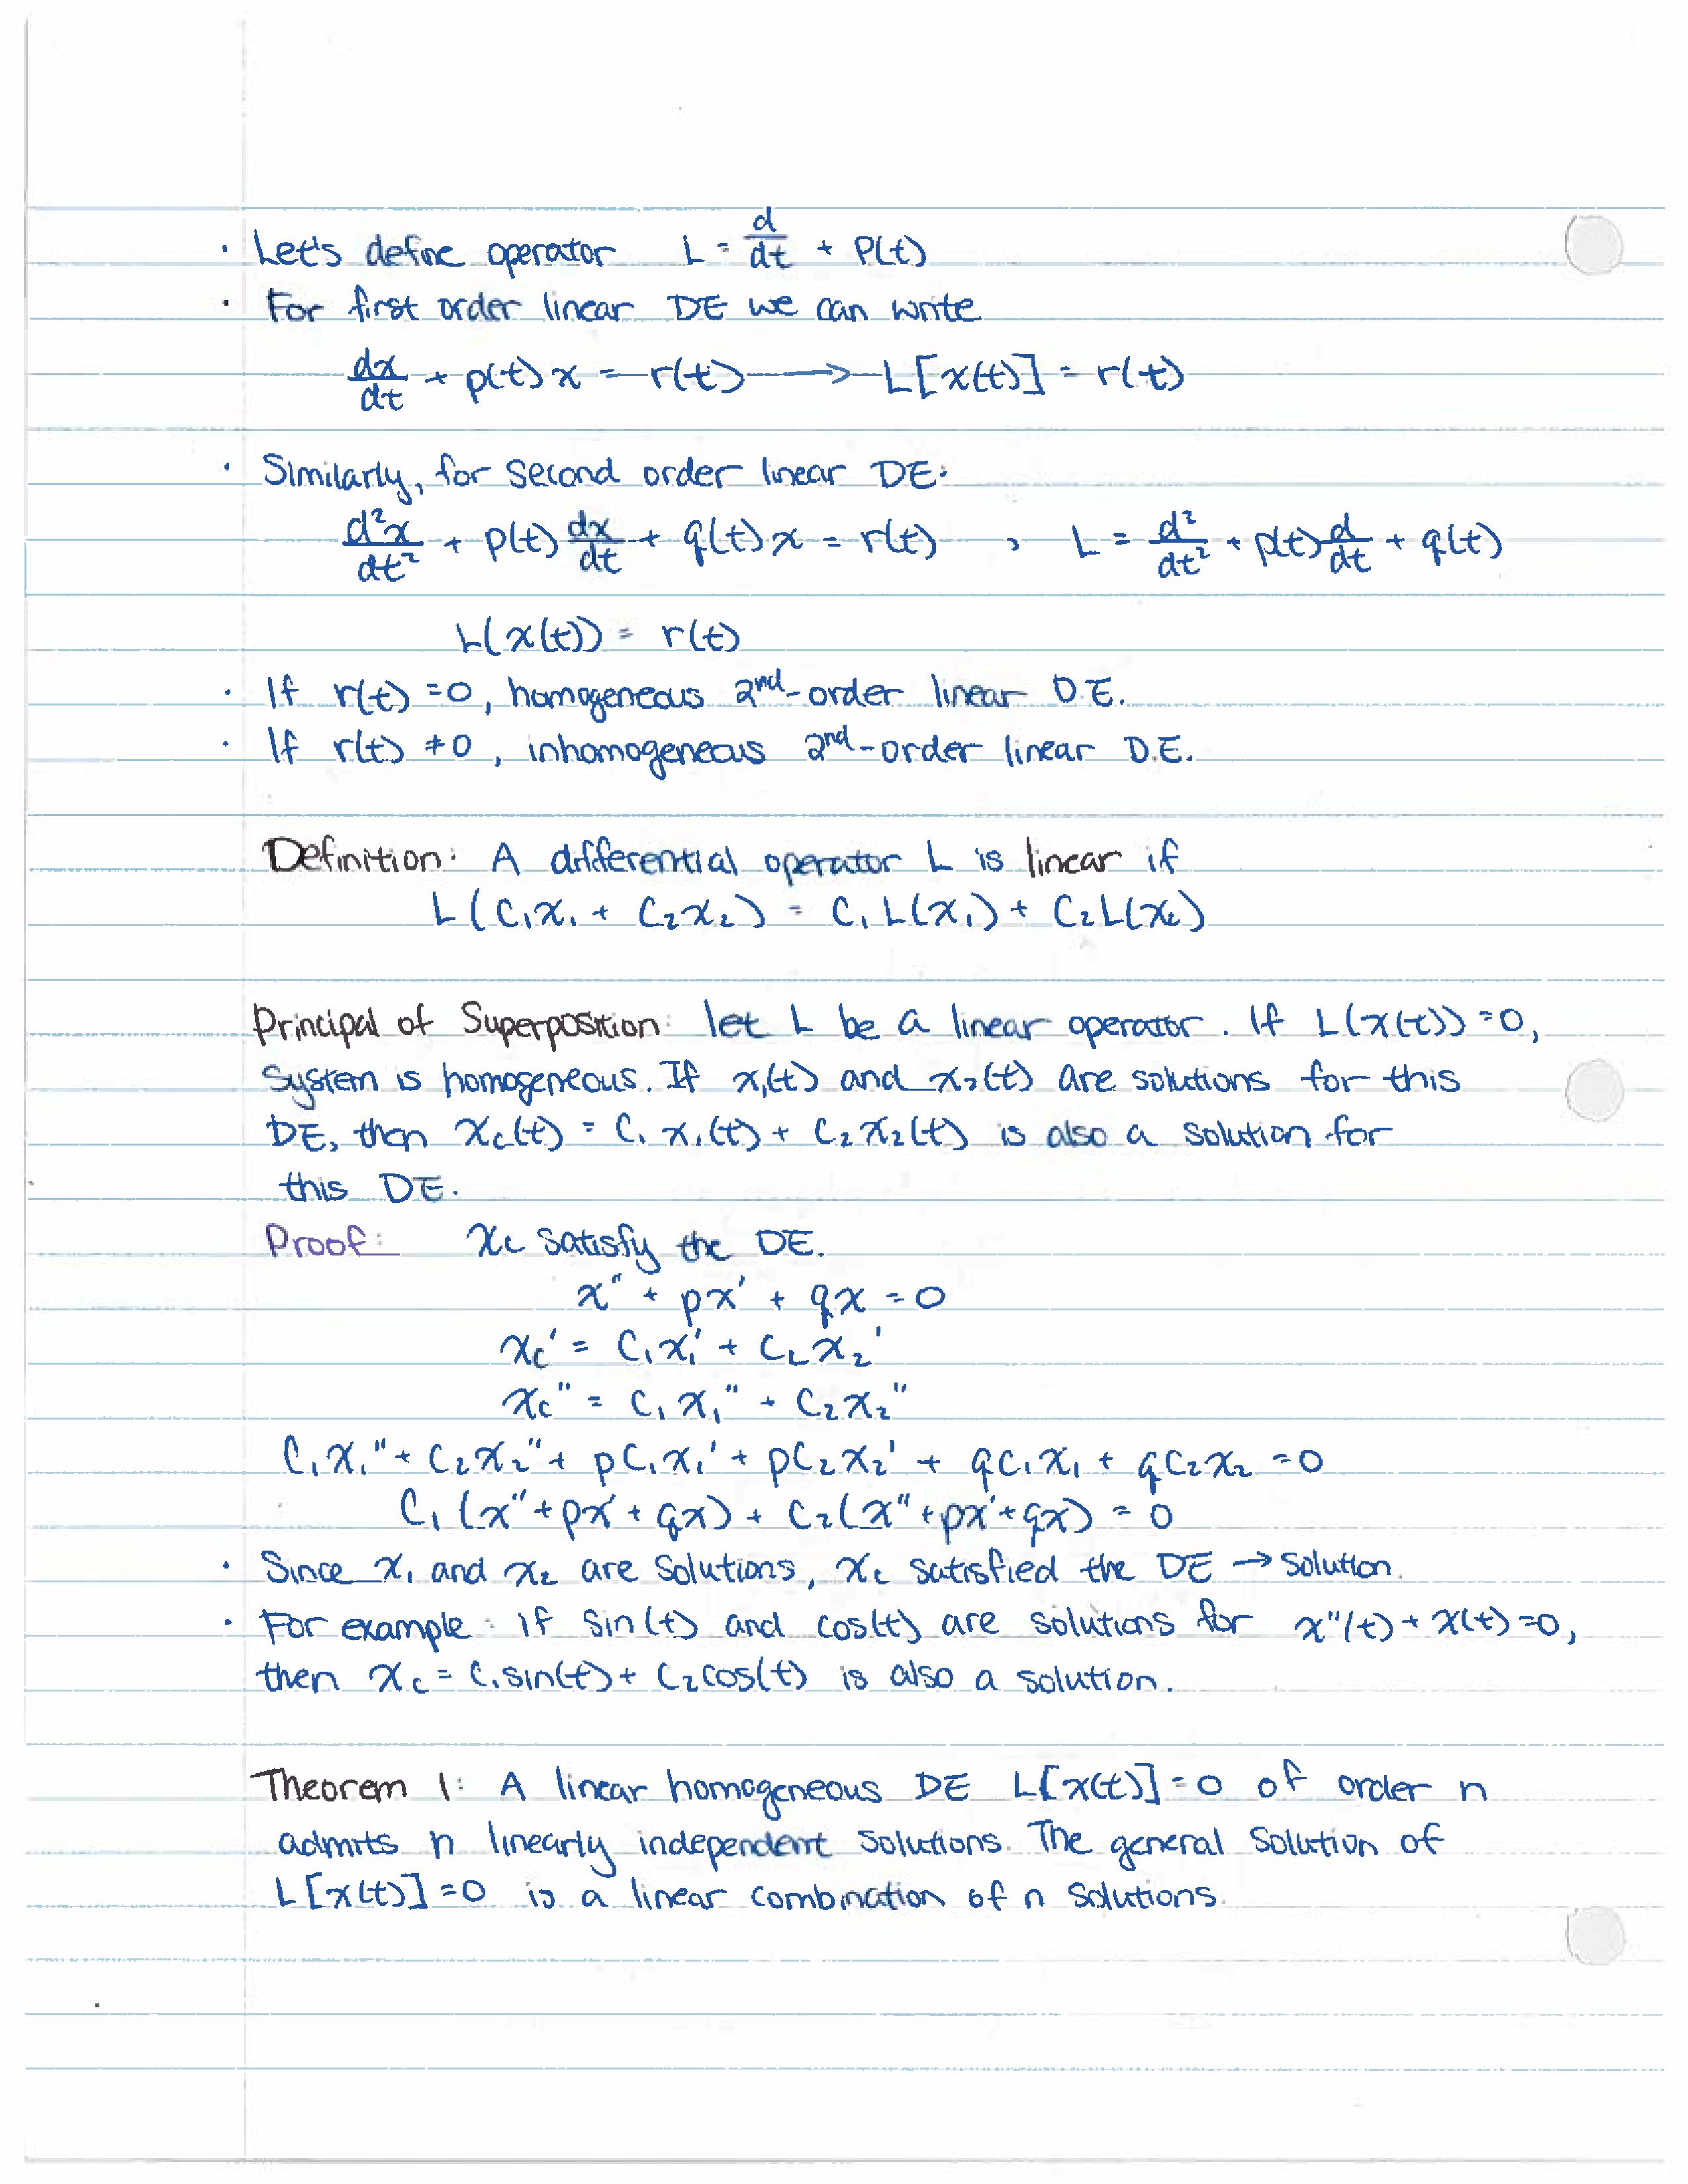 · Let's define operator L = d/dt + P(t)
· For first order linear DE we can write
dx/dt + p(t) x = r(t) → L[x(t)] = r(t)
· Similarly, for second order linear DE:
d²x/dt² + p(t) dx/dt + q(t) x = r(t) , L = d²/dt² + p(t) d/dt + q(t)
L(x(t)) = r(t)
· If r(t) = 0, homogeneous 2nd-order linear D.E.
· If r(t) ≠ 0, inhomogeneous 2nd-order linear D.E.
Definition: A differential operator L is linear if
L(C₁x₁ + C₂x₂) = C₁L(x₁) + C₂L(x₂)
Principal of Superposition: let L be a linear operator. If L(x(t)) = 0,
System is homogeneous. If x₁(t) and x₂(t) are solutions for this
DE, then x_c(t) = C₁x₁(t) + C₂x₂(t) is also a solution for
this DE.
Proof: x_c satisfy the DE.
x" + px' + qx = 0
x_c' = C₁x₁' + C₂x₂'
x_c" = C₁x₁" + C₂x₂"
C₁x₁" + C₂x₂" + pC₁x₁' + pC₂x₂' + qC₁x₁ + qC₂x₂ = 0
C₁(x" + px' + qx) + C₂(x" + px' + qx) = 0
· Since x₁ and x₂ are solutions, x_c satisfied the DE → solution.
· For example: if sin(t) and cos(t) are solutions for x"(t) + x(t) = 0,
then x_c = C₁sin(t) + C₂cos(t) is also a solution.
Theorem 1: A linear homogeneous DE L[x(t)] = 0 of order n
admits n linearly independent solutions. The general solution of
L[x(t)] = 0 is a linear combination of n solutions.